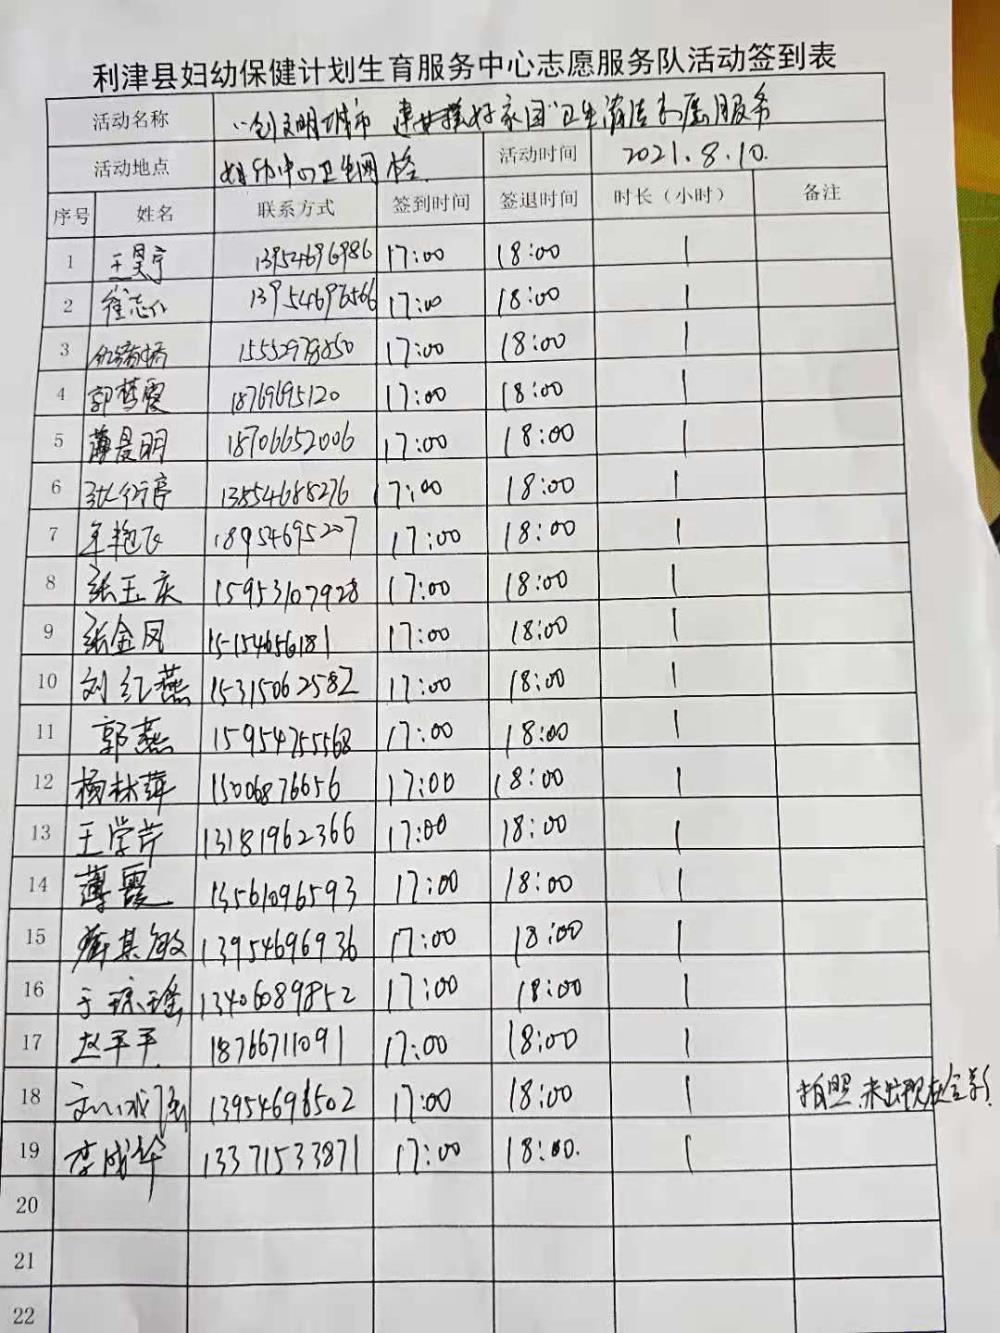 利津县妇幼保健计划生育服务中心志愿服务队活动签到表
活动名称 "创文明城市 建美好家园"卫生清洁志愿服务
活动地点 妇幼中心卫生网格 活动时间 2021.8.10.
序号 姓名 联系方式 签到时间 签退时间 时长（小时） 备注
1 王昊宇 13954696986 17:00 18:00 1
2 崔志仁 13954696566 17:00 18:00 1
3 15552978850 17:00 18:00 1
4 郭梦霞 18769695120 17:00 18:00 1
5 薄晨明 18706652006 17:00 18:00 1
6 张行亭 13854688276 17:00 18:00 1
7 年艳飞 18954695207 17:00 18:00 1
8 张玉庆 15953107928 17:00 18:00 1
9 张金凤 15154656181 17:00 18:00 1
10 刘红燕 15315062582 17:00 18:00 1
11 郭燕 15954755568 17:00 18:00 1
12 杨林萍 15006876656 17:00 18:00 1
13 王学芹 13181962366 17:00 18:00 1
14 薄霞 13561096593 17:00 18:00 1
15 薛其敏 13954696936 17:00 18:00 1
16 于琼瑶 13406089852 17:00 18:00 1
17 赵平平 18766711091 17:00 18:00 1
18 13954698502 17:00 18:00 1 拍照,未出现在合影.
19 李成华 13371533871 17:00 18:00. 1
20
21
22